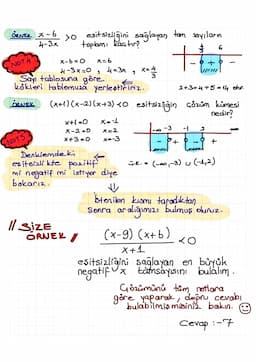 ÖRNEK x-6 / 4-3x >0 esitsizliğini sağlayan tam sayıların
toplamı kaçtır?
NOT4
x-6=0 x=6
4-3x=0, 4=3x, x=4/3
Sayı tablosuna göre
kökleri tablomuza yerleştiririz.
2+3+4+5=14 olur
ÖRNEK (x+1)(x-2)(x+3)<0 eşitsizliğin çözüm kümesi
nedir?
x+1=0 x=-1
x-2=0 x=2
x+3=0 x=-3
-∞ -3 -1 2 ∞
- + - +
NOT5
Denklemdeki
eşitsizlikte pozitif
mi negatif mi istiyor diye
bakarız.
Ç.K= (-∞,-3) ∪ (-1,2)
İstenilen kısmı taradıktan
sonra aralığımızı bulmuş oluruz.
// SİZE
ÖRNEK //
(x-9)(x+6) / x+1 <0
eşitsizliğini sağlayan en büyük
negatif x tamsayısını bulalım.
Çözümünü tüm notlara
göre yaparak, doğru cevabı
bulabilmiş misiniz bakın. ☺
Cevap:-7